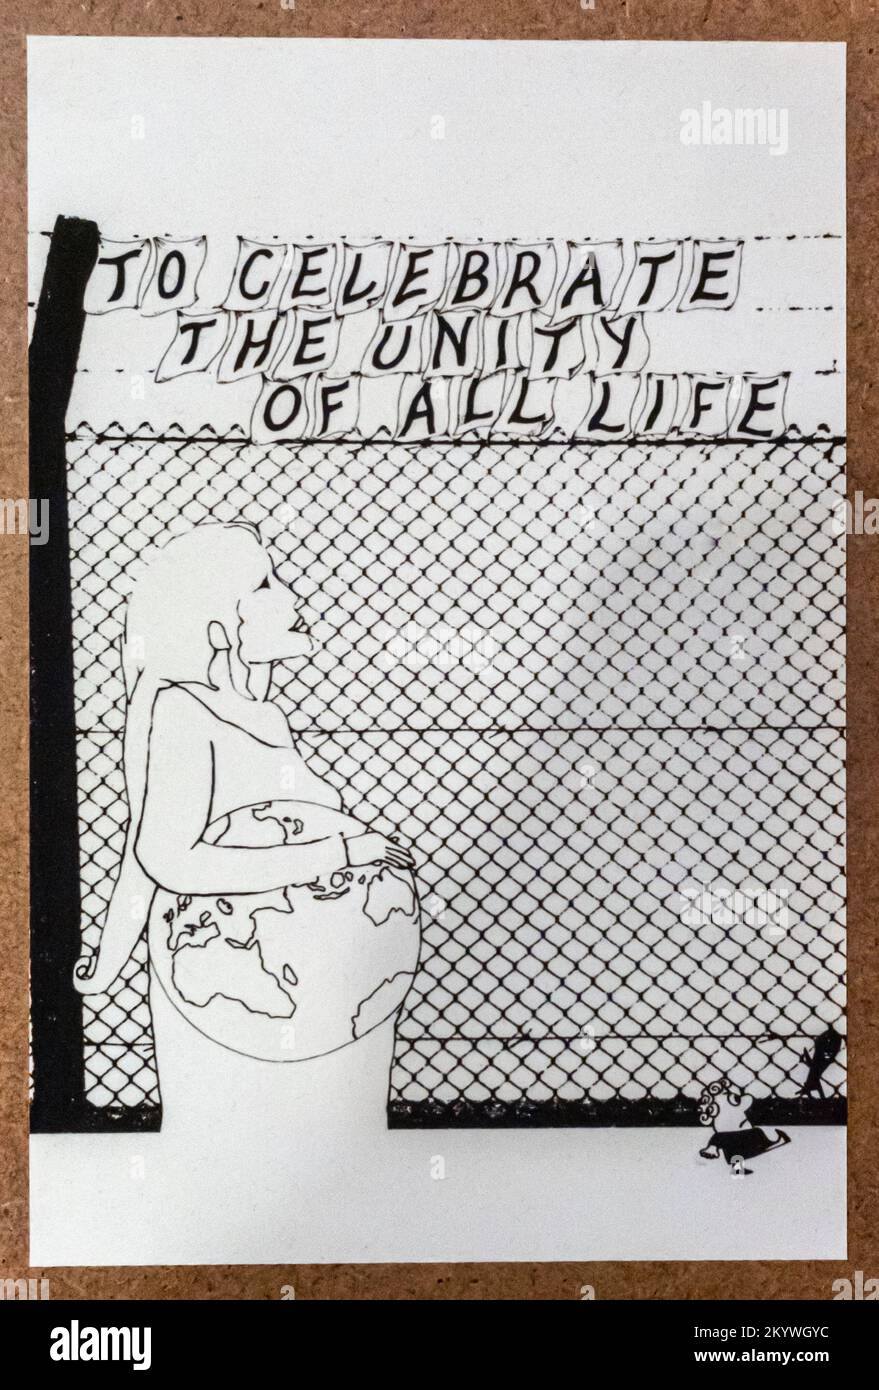 TO CELEBRATE
THE UNITY
OF ALL LIFE
alamy
alamy
alamy
Image ID: 2KYWGYC
www.alamy.com